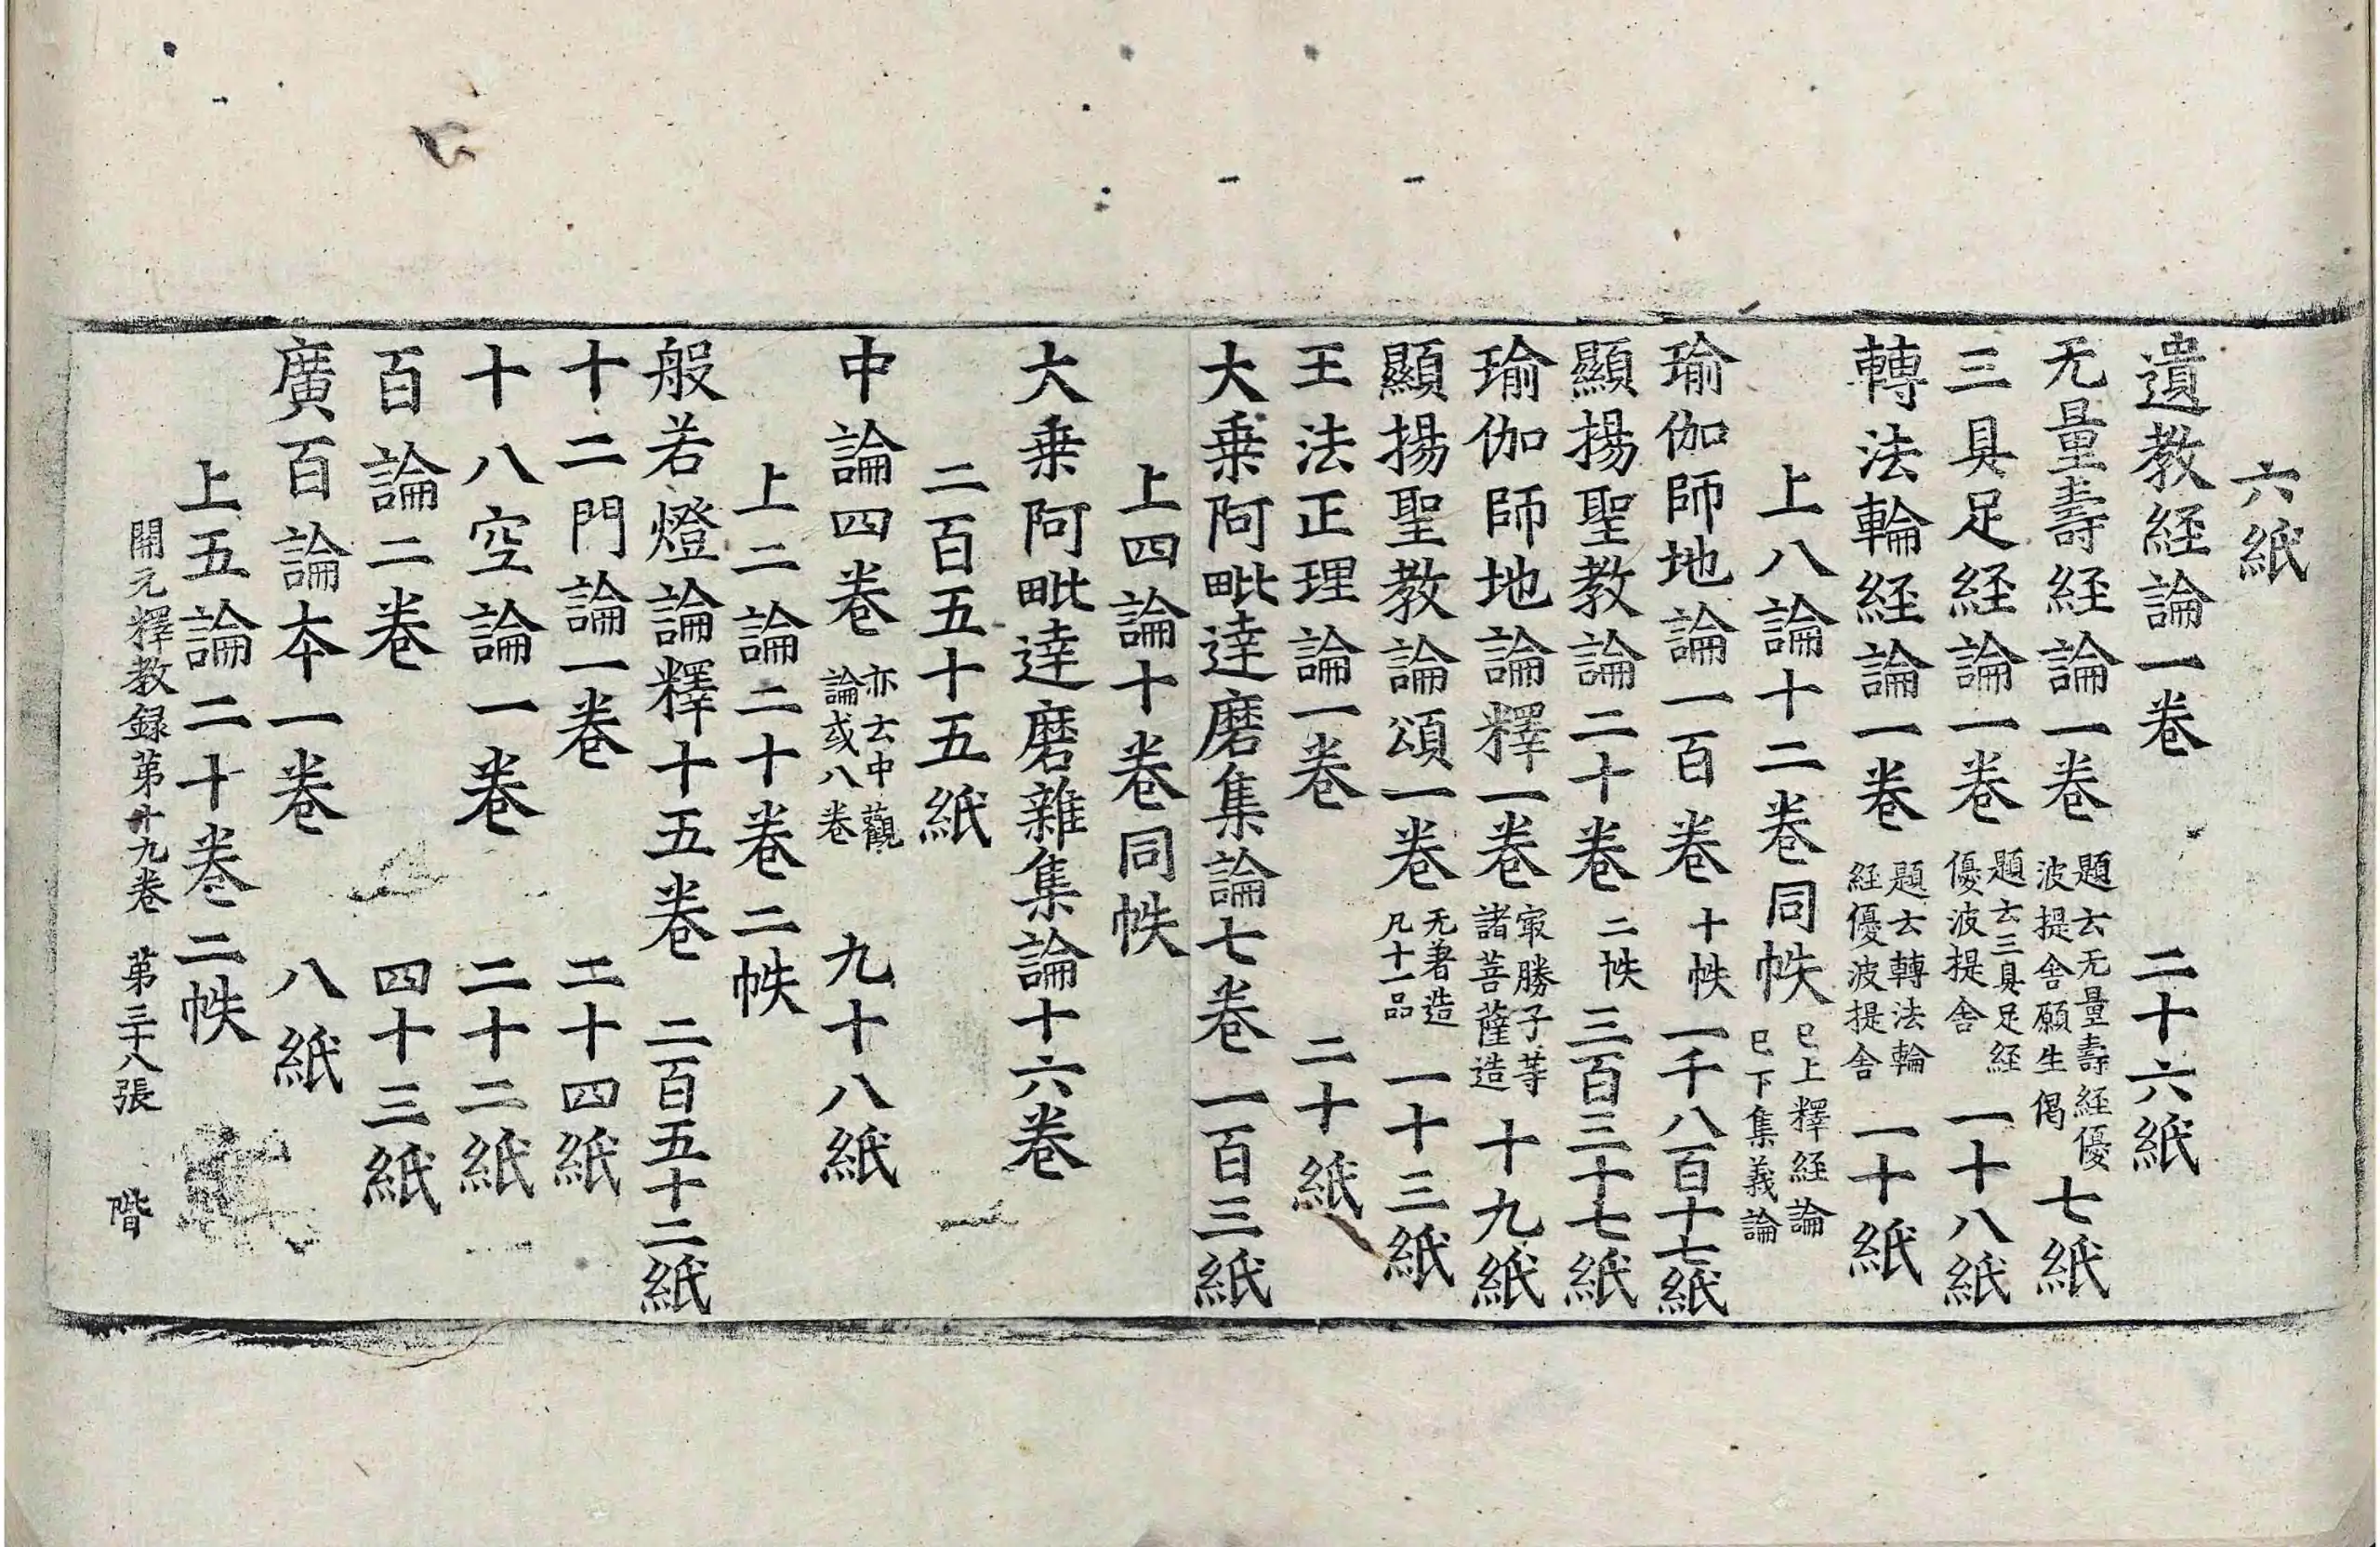 六紙
遺教経論一卷 二十六紙
无量壽経論一卷 題云无量壽経優波提舍願生偈 七紙
三具足経論一卷 題云三具足経優波提舍 一十八紙
轉法輪経論一卷 題云轉法輪経優波提舍 一十紙
上八論十二卷同帙 已上釋経論已下集義論
瑜伽師地論一百卷 十帙 一千八百十七紙
顯揚聖教論二十卷 二帙 三百三十七紙
瑜伽師地論釋一卷 㝡勝子䓁諸菩薩造 十九紙
顯揚聖教論頌一卷 无著造凡十一品 一十三紙
王法正理論一卷 二十紙
大乗阿毗達磨集論七卷 一百三紙
上四論十卷同帙
大乗阿毗達磨雜集論十六卷
二百五十五紙
中論四卷 亦云中觀論或八卷 九十八紙
上二論二十卷二帙
般若燈論釋十五卷 二百五十二紙
十二門論一卷 二十四紙
十八空論一卷 二十二紙
百論二卷 四十三紙
廣百論夲一卷 八紙
上五論二十卷二帙
開元釋教録苐廾九卷 苐三十八張 階